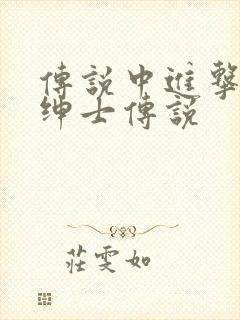 傳說中進擊
绅士傳説
莊雯如